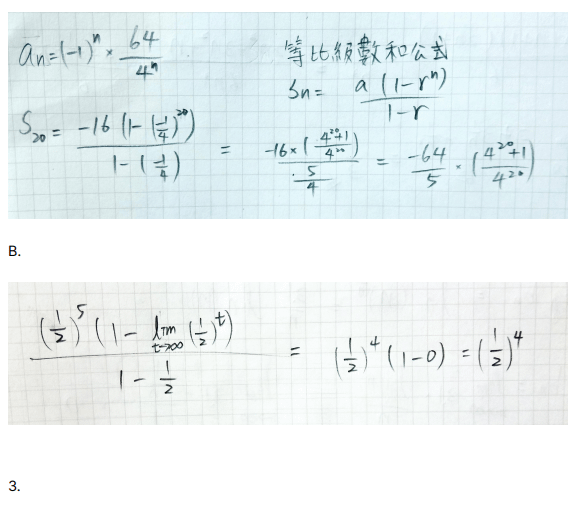 aₙ = (-1)ⁿ × 64/4ⁿ
等比級數和公式
Sₙ = a(1-rⁿ)/(1-r)
S₂₀ = -16(1-(-1/4)²⁰)/(1-(-1/4)) = -16×((4²⁰+1)/4²⁰)/(5/4) = -64/5 · ((4²⁰+1)/4²⁰)
B.
(1/2)⁵(1 - lim t→∞ (1/2)ᵗ)/(1 - 1/2) = (1/2)⁴(1-0) = (1/2)⁴
3.